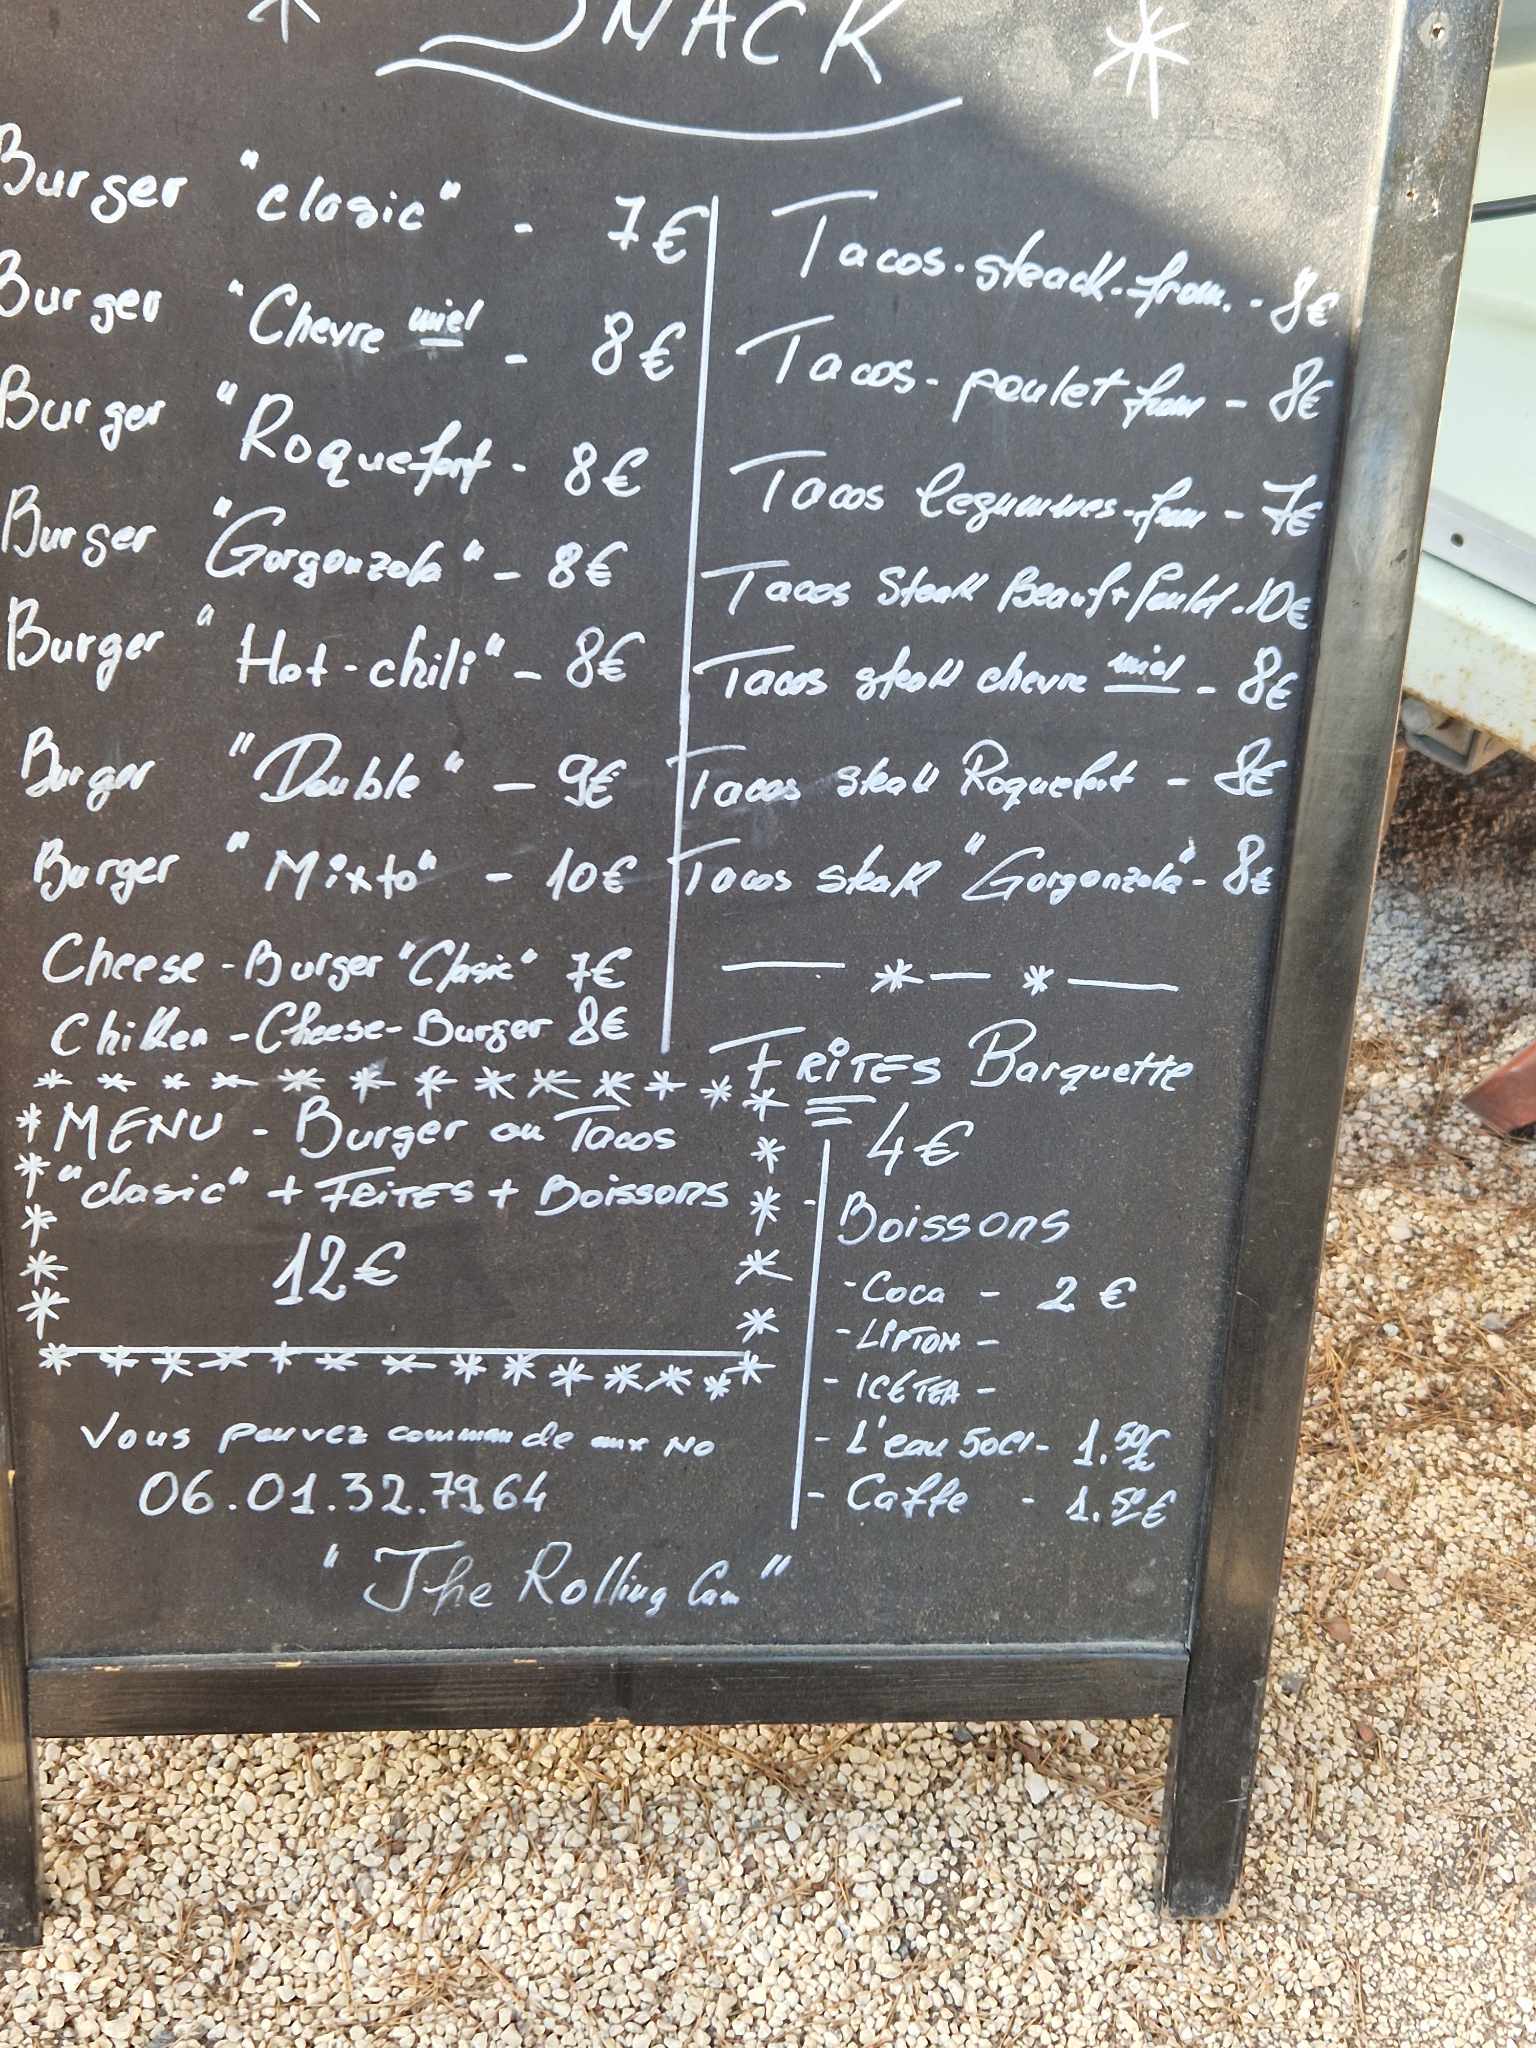 SNACK
Burger "clasic" - 7€
Burger "Chevre miel - 8€
Burger "Roquefort - 8€
Burger "Gorgonzola" - 8€
Burger "Hot-chili" - 8€
Burger "Double" - 9€
Burger "Mixto" - 10€
Cheese-Burger "Clasic" 7€
Chikken-Cheese-Burger 8€
Tacos-steack-from. - 8€
Tacos-poulet from - 8€
Tacos legummes-from - 7€
Tacos Steak Beauf+Poulet-10€
Tacos steak chevre miel - 8€
Tacos steak Roquefort - 8€
Tacos steak "Gorgonzola" - 8€
MENU - Burger ou Tacos
"clasic" + FRITES + Boissons
12€
Vous pouvez commande aux No
06.01.32.79.64
"The Rolling
FRITES Barquette
4€
Boissons
- Coca - 2 €
- LIPTON -
- ICE TEA -
- L'eau 50cl - 1.50€
- Caffe - 1.50€